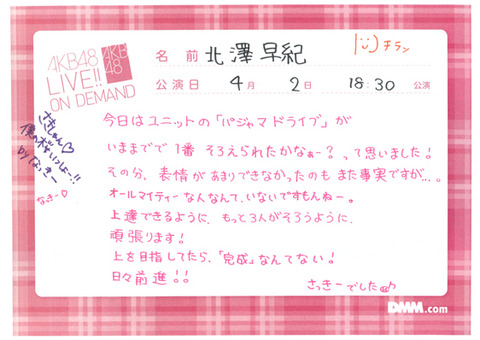 AKB48
LIVE!!
ON DEMAND
AKB
48
名前 北澤早紀
チラン
公演日 4月2日 18:30 公演
今日はユニットの「パジャマドライブ」が
いままでで1番 そろえられたかなぁー?って思いました!
その分、表情があまりできなかったのもまた事実ですが…。
オールマイティーな人なんて、いないですもんねー。
上達できるように、もっと3人がそろうように、
頑張ります!
上を目指してたら、「完成」なんてない!
日々前進!!
さっきーでした
さきしゃん♡
僕の桜いっしょー!!
byなっきー
なっきー♡
DMM.com